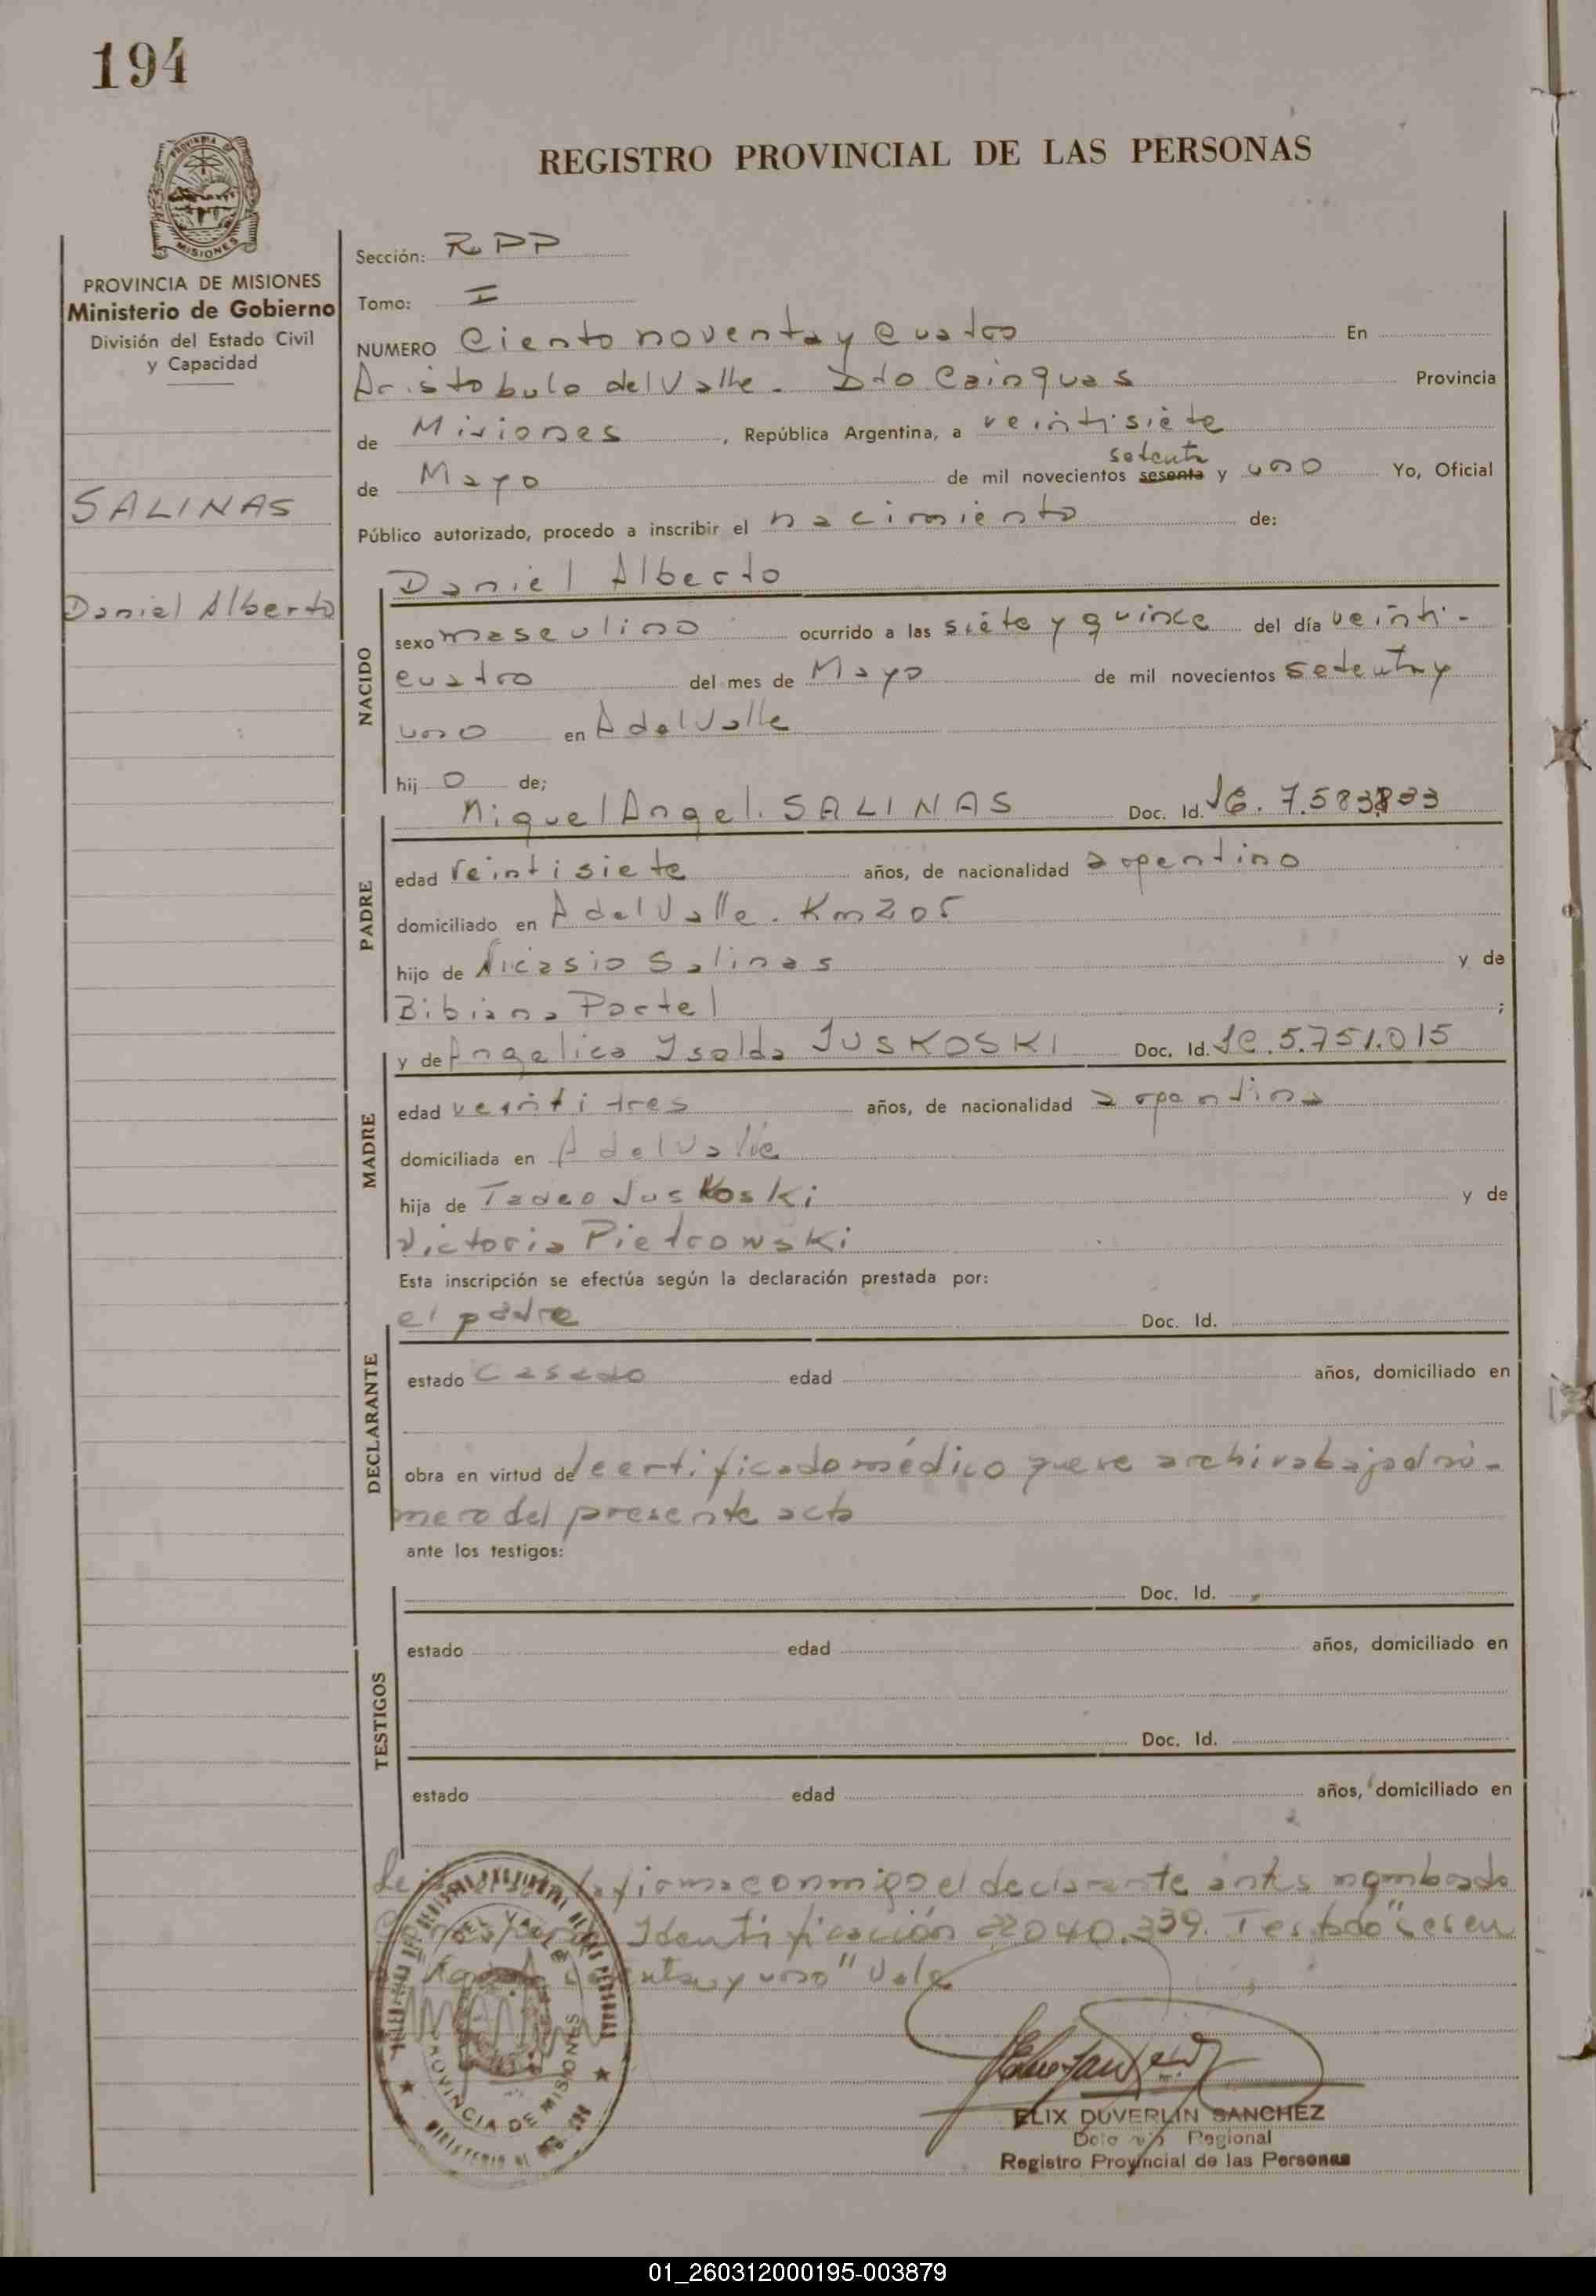 194
REGISTRO PROVINCIAL DE LAS PERSONAS
PROVINCIA DE MISIONES
Ministerio de Gobierno
División del Estado Civil
y Capacidad
SALINAS
Daniel Alberto
Sección: RPP
Tomo: I
NUMERO Ciento noventa y cuatro En
Aristobulo del Valle. Dto Cainguas Provincia
de Misiones, República Argentina, a veintisiete
setenta
de Mayo de mil novecientos sesenta y uno Yo, Oficial
Público autorizado, procedo a inscribir el nacimiento de:
NACIDO
Daniel Alberto
sexo masculino ocurrido a las siete y quince del día veinti-
cuatro del mes de Mayo de mil novecientos setenta y
uno en A del Valle
hijo de;
PADRE
Miguel Angel. SALINAS Doc. Id.
edad veintisiete años, de nacionalidad argentino
domiciliado en A del Valle. Km 205
hijo de Nicasio Salinas y de
Bibiana Portel;
MADRE
y de Angelica Ysolda JUSKOSKI Doc. Id. 5.751.015
edad veintitres años, de nacionalidad argentina
domiciliada en A del Valle
hija de Tadeo Juskoski y de
Victoria Pietrowski
Esta inscripción se efectúa según la declaración prestada por:
DECLARANTE
el padre Doc. Id.
estado casado edad años, domiciliado en
obra en virtud del certificado médico que se archiva bajo el nú-
mero del presente acta
ante los testigos:
TESTIGOS
Doc. Id.
estado edad años, domiciliado en
Doc. Id.
estado edad años, domiciliado en
firma conmigo el declarante antes nombrado
Identificación 22040.339. Testado "sesen
y uno" Vale
DEL VALLE
PROVINCIA DE MISIONES
ELIX DUVERLIN SANCHEZ
Regional
Registro Provincial de las Personas
01_260312000195-003879